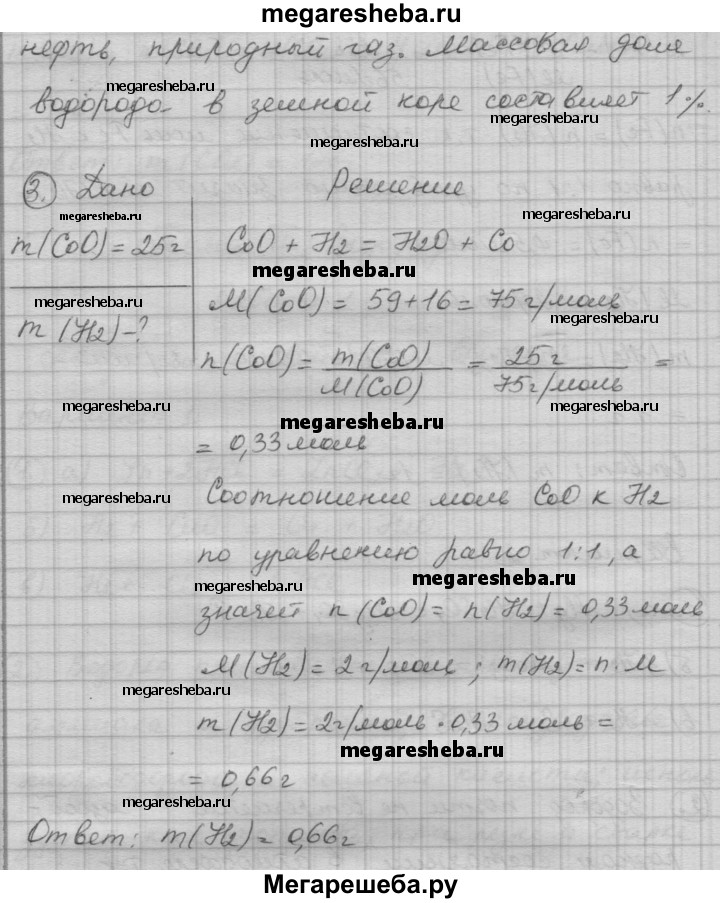 megaresheba.ru
нефть, природный газ. Массовая доля
megaresheba.ru
водорода в земной коре составляет 1%.
megaresheba.ru
megaresheba.ru
3. Дано Решение
megaresheba.ru megaresheba.ru
m(CoO)=25г CoO + H2 = H2O + Co
megaresheba.ru
megaresheba.ru M(CoO) = 59+16 = 75 г/моль
megaresheba.ru
m(H2)-? n(CoO) = m(CoO)/M(CoO) = 25г/75г/моль =
megaresheba.ru megaresheba.ru
megaresheba.ru
= 0,33 моль
megaresheba.ru Соотношение моль CoO к H2
по уравнению равно 1:1, а
megaresheba.ru megaresheba.ru
значит n(CoO) = n(H2) = 0,33 моль
M(H2) = 2 г/моль; m(H2) = n·M
megaresheba.ru
m(H2) = 2г/моль · 0,33 моль =
megaresheba.ru
= 0,66 г
megaresheba.ru
Ответ: m(H2) = 0,66г
Мегарешеба.ру